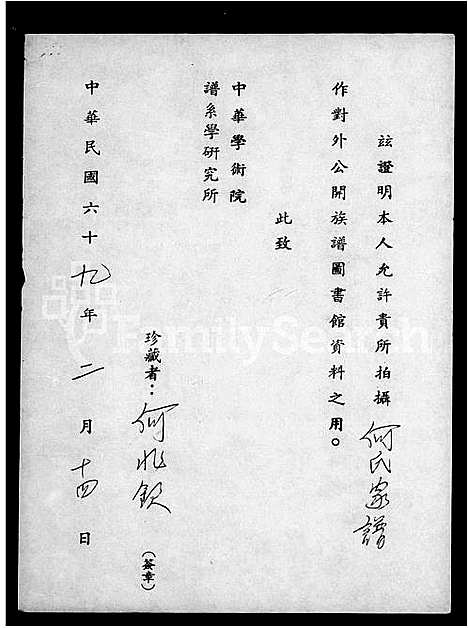 玆證明本人允許貴所拍攝何氏家譜
作對外公開族譜圖書館資料之用。
此致
中華學術院
譜系學研究所
珍藏者：何兆欽
（簽章）
中華民國六十九年二月十四日
FamilySearch